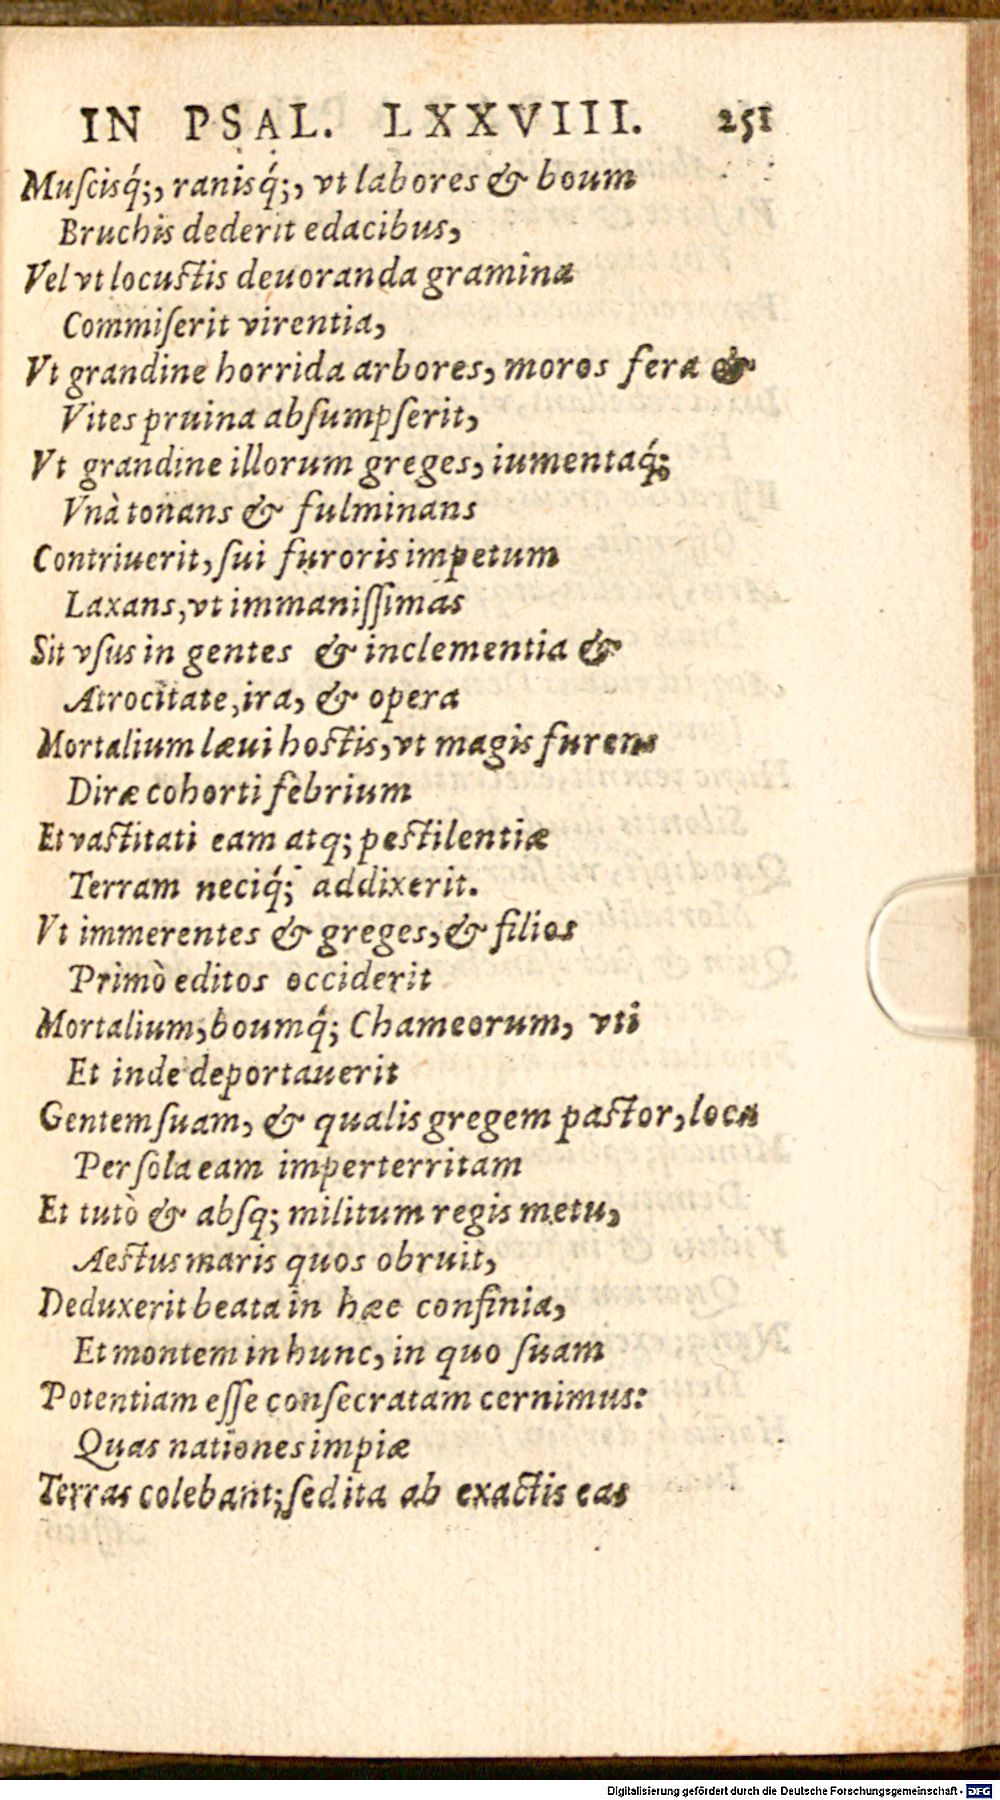 IN PSAL. LXXVIII. 251
Muſcisq́;, ranisq́;, vt labores & boum
Bruchis dederit edacibus,
Vel vt locustis deuoranda gramina
Commiſerit virentia,
Vt grandine horrida arbores, moros fera &
Vites pruina abſumpſerit,
Vt grandine illorum greges, iumentaq́;
Vnà tonans & fulminans
Contriuerit, ſui furoris impetum
Laxans, vt immaniſſimas
Sit vſus in gentes & inclementia &
Atrocitate, ira, & opera
Mortalium læui hostis, vt magis furens
Diræ cohorti febrium
Et vastitati eam atq; pestilentiæ
Terram neciq́; addixerit.
Vt immerentes & greges, & filios
Primò editos occiderit
Mortalium, boumq́; Chameorum, vti
Et inde deportauerit
Gentem ſuam, & qualis gregem pastor, loca
Per ſola eam imperterritam
Et tutò & abſq; militum regis metu,
Aestus maris quos obruit,
Deduxerit beata in hæc confinia,
Et montem in hunc, in quo ſuam
Potentiam eſſe conſecratam cernimus:
Quas nationes impiæ
Terras colebant; ſed ita ab exactis eas
Digitalisierung gefördert durch die Deutsche Forschungsgemeinschaft - DFG